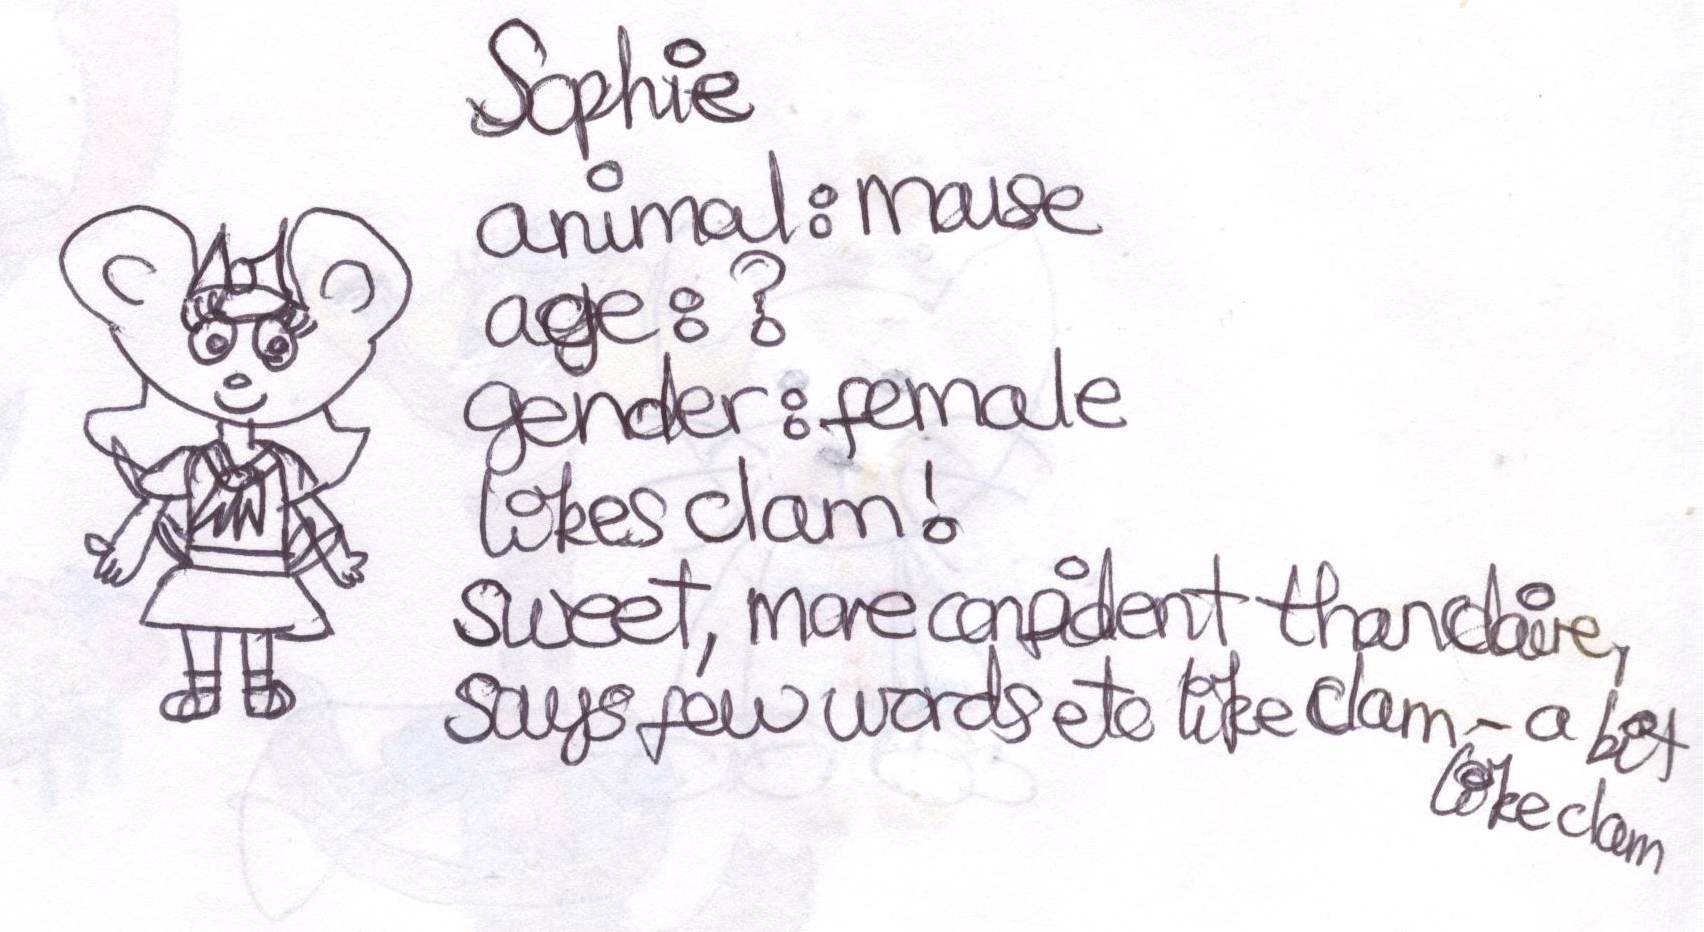 Sophie
animal: mouse
age: ?
gender: female
likes clam!
sweet, more confident than claire,
says few words etc like clam - a bit
like clam